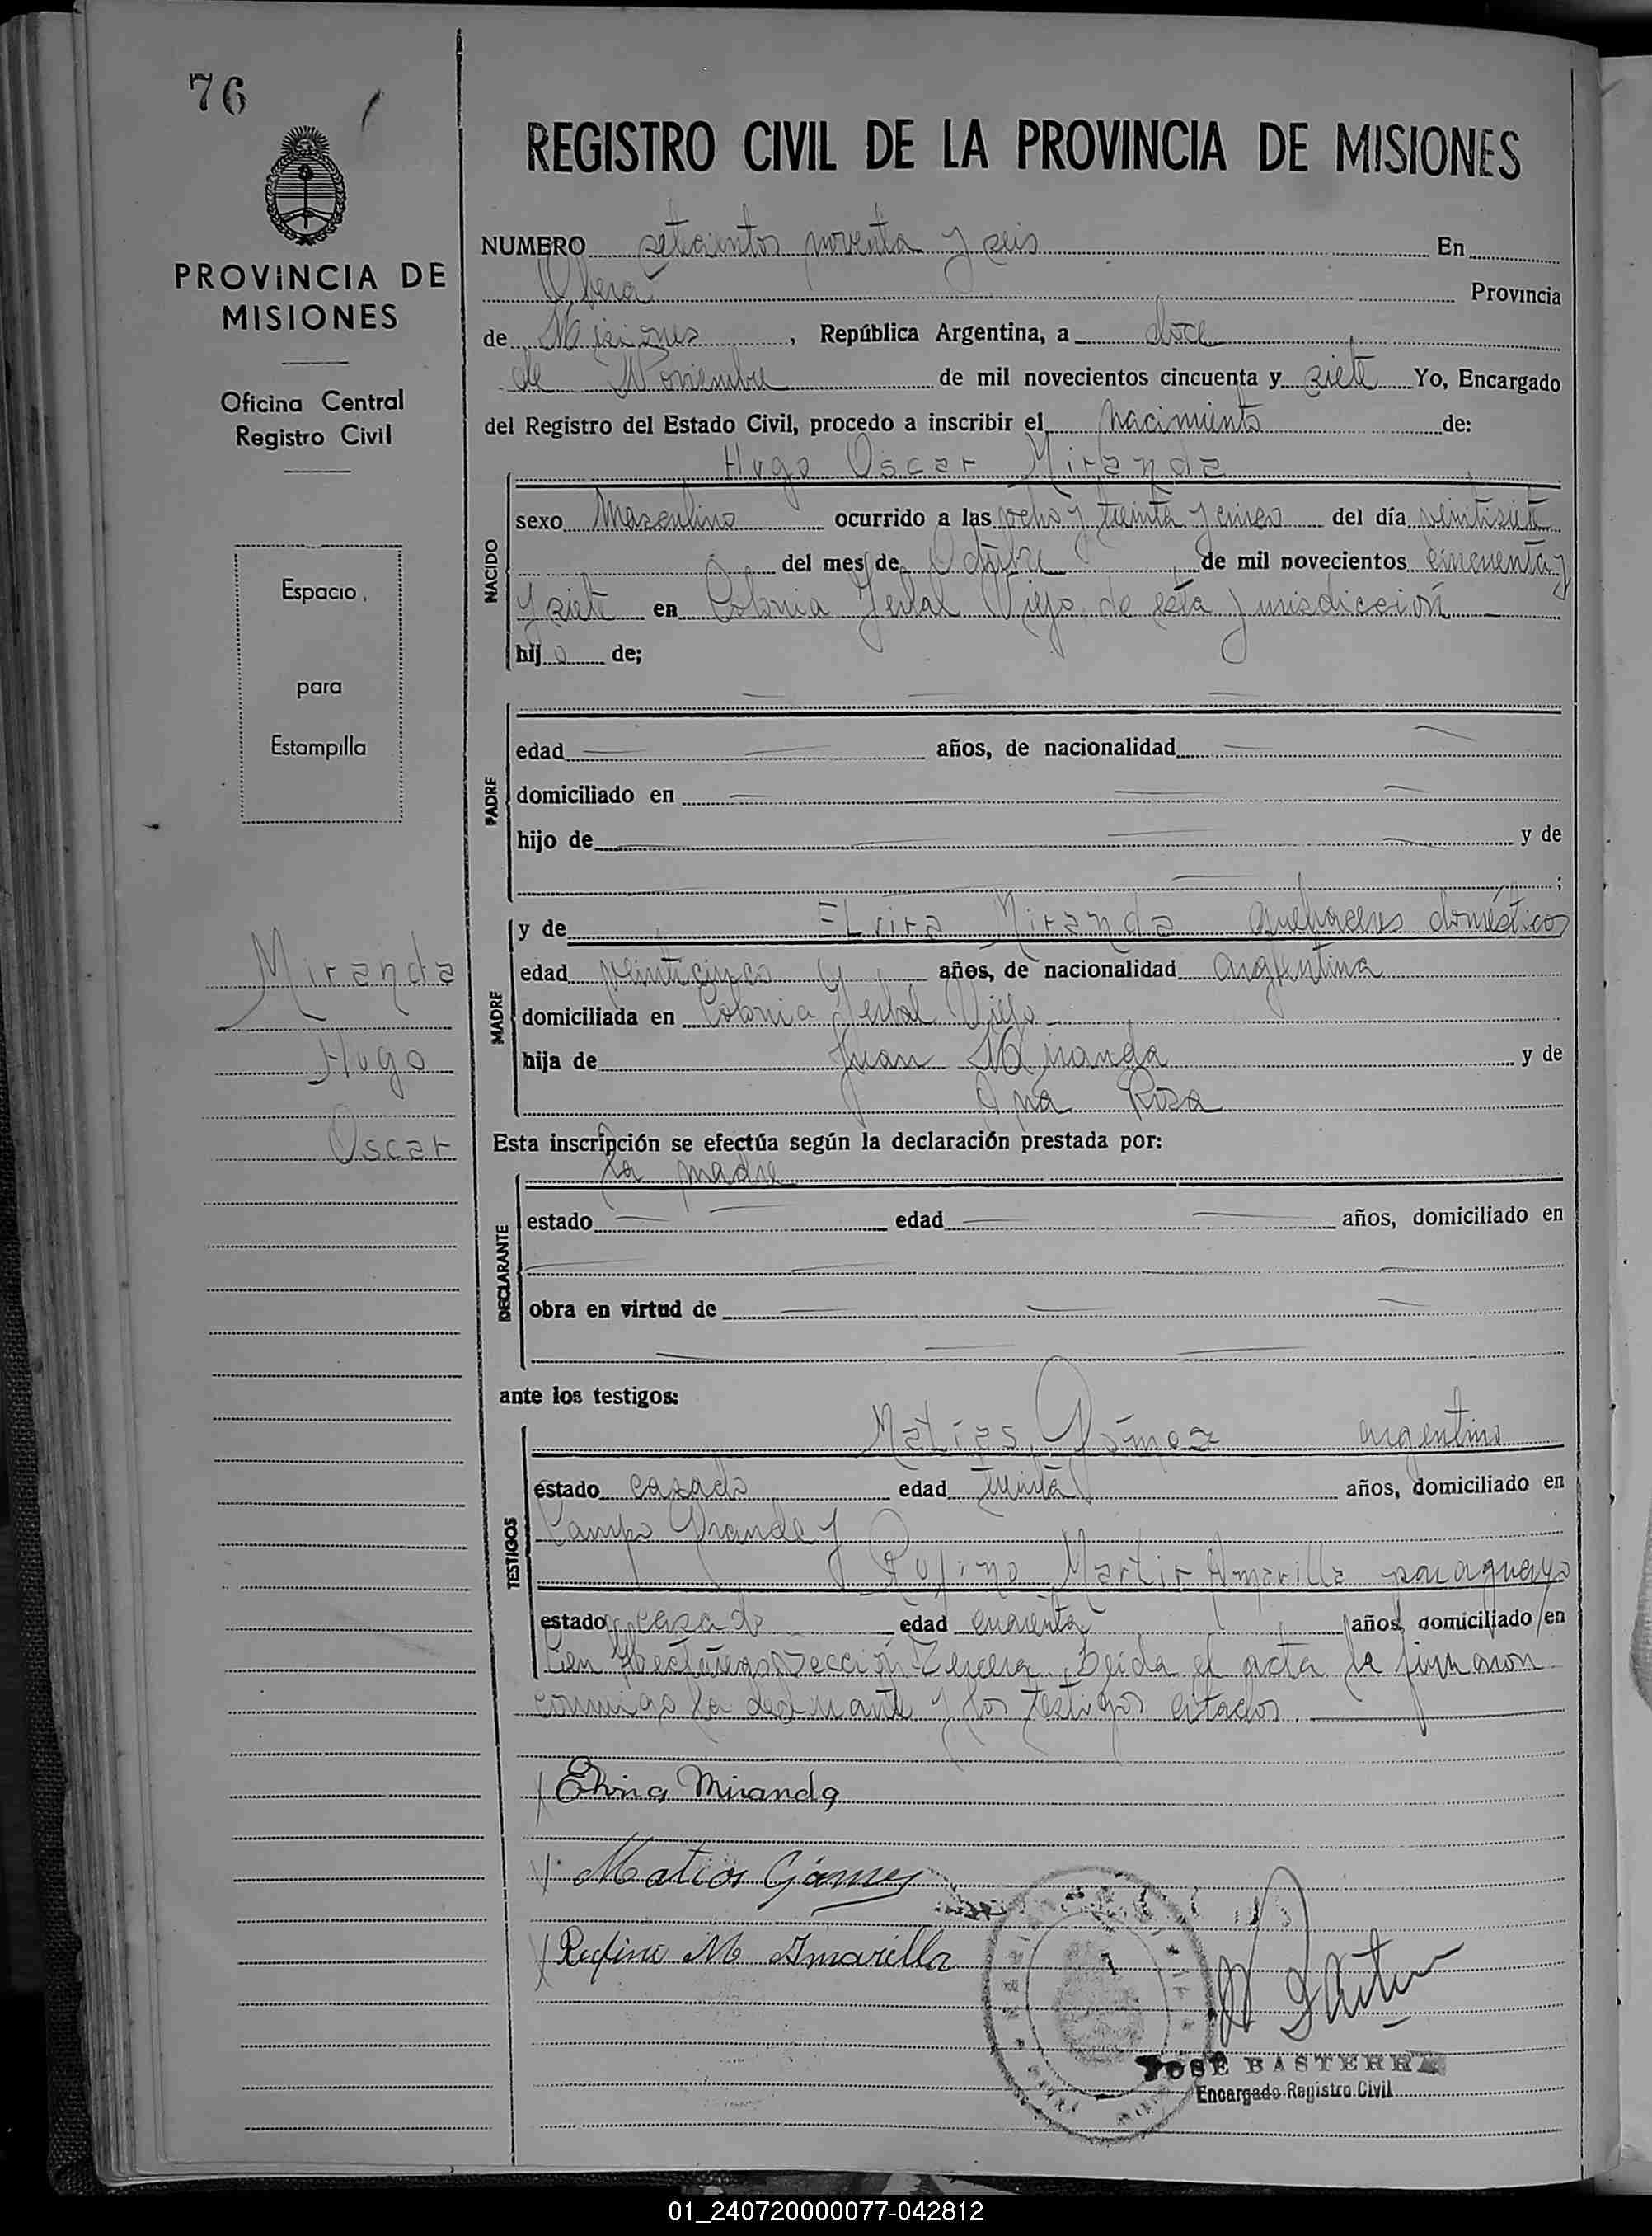 76
REGISTRO CIVIL DE LA PROVINCIA DE MISIONES
PROVINCIA DE
MISIONES
Oficina Central
Registro Civil
Espacio
para
Estampilla
Miranda
Hugo
Oscar
NUMERO setecientos noventa y seis En
Oberá Provincia
de Misiones, República Argentina, a doce
de Noviembre de mil novecientos cincuenta y siete Yo, Encargado
del Registro del Estado Civil, procedo a inscribir el nacimiento de:
Hugo Oscar Miranda
NACIDO
sexo Masculino ocurrido a las ocho y treinta y cinco del día veintisiete
del mes de Octubre de mil novecientos cincuenta y
y siete en Colonia Yerbal Viejo de esta jurisdicción
hijo de;
PADRE
edad años, de nacionalidad
domiciliado en
hijo de y de
;
MADRE
y de Elvira Miranda quehaceres domésticos
edad veinticinco años, de nacionalidad argentina
domiciliada en Colonia Yerbal Viejo
hija de Juan Miranda y de
Ana Rosa
Esta inscripción se efectúa según la declaración prestada por:
la madre
DECLARANTE
estado edad años, domiciliado en
obra en virtud de
ante los testigos:
TESTIGOS
Matías Gómez argentino
estado casado edad treinta años, domiciliado en
Campo Grande y
Rufino Martir Amarilla paraguayo
estado casado edad cuarenta años, domiciliado en
Cien Hectáreas Sección Tercera. Leida el acta la firmaron
conmigo la declarante y los testigos citados.
Elvira Miranda
Matias Gómez
Rufino M Amarilla
JOSÉ BASTERRA
Encargado Registro Civil
01_240720000077-042812